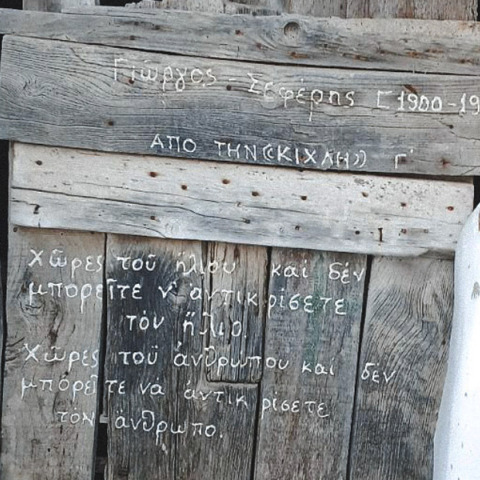 Γιώργος - Σεφέρης [1900-19
ΑΠΟ ΤΗΝ «ΚΙΧΛΗ» Γ΄
Χῶρες τοῦ ἥλιου καί δέν
μπορεῖτε ν' ἀντικρίσετε
τὸν ἥλιο.
Χῶρες τοῦ ἀνθρωπου καί δεν
μπορεῖτε νά ἀντικρισετε
τὸν ἄνθρωπο.